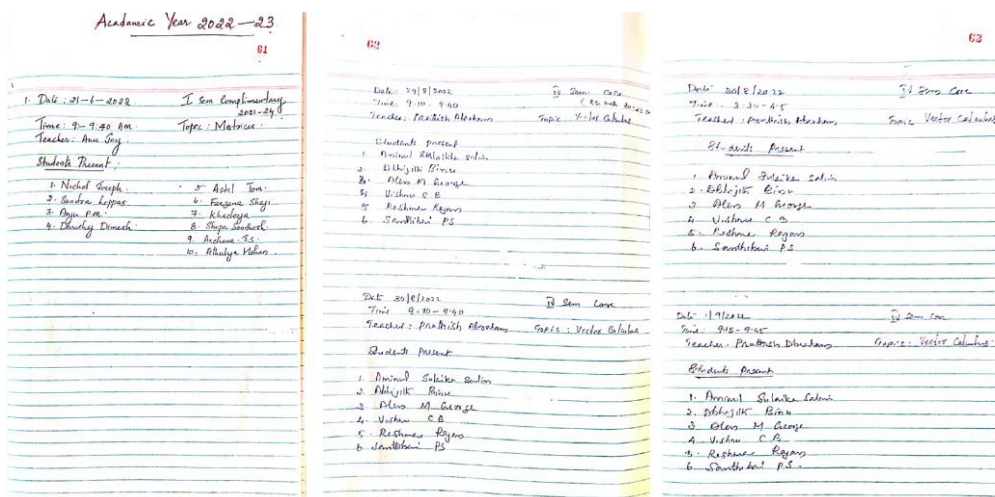 Academic Year 2022-23
61
1. Date: 21-6-2022
I Sem Complimentary
2021-24
Time: 9-9:40 Am
Topic: Matrices
Teacher: Anu Joy
Students Present:
1. Nichol Joseph
2. Sandra
3. P.M.
4. Dinesh
5 Ashl Tom
6. Farzana Shaji
7. Khadeeja
8. Shipa Santhosh
9. Archana T.S.
10. Athulya Mohan
62
Date: 29/8/2022
IV Sem Core
Time 9.10-9.40
Teacher: Prathish Abraham
Topic Vector Calculus
Students present
1. Aminul Sulaika Salim
2. Abhijith Binu
3. Alen M George
4 Vishnu C B
5 Reshma Rogans
6 Santhikavi PS
Date 30/8/2022
IV Sem Core
Time 9.10-9:40
Teacher: Prathish Abraham
Topic: Vector Calculus
Students Present
1. Aminul Sulaika Salim
2. Abhijith Binu
3 Alen M George
4. Vishnu C B
5. Reshma Rogans
6 Santhikavi PS
63
Date 30/8/2022
IV Sem Core
Time 3.30-4.5
Teacher: Prathish Abraham
Topic Vector Calculus
Students Present
1 Aminul Sulaika Salim
2. Abhijith Binu
3 Alen M George
4. Vishnu C B
5. Reshma Rogans
6. Santhikavi P S
Date 1/9/2022
IV Sem Core
Time: 9.15-9.45
Teacher. Prathish Abraham
Topic: Vector Calculus
Students Present
1. Aminul Sulaika Salim
2. Abhijith Binu
3 Alen M George
4 Vishnu C B
5. Reshma Rogans
6 Santhikavi P S.